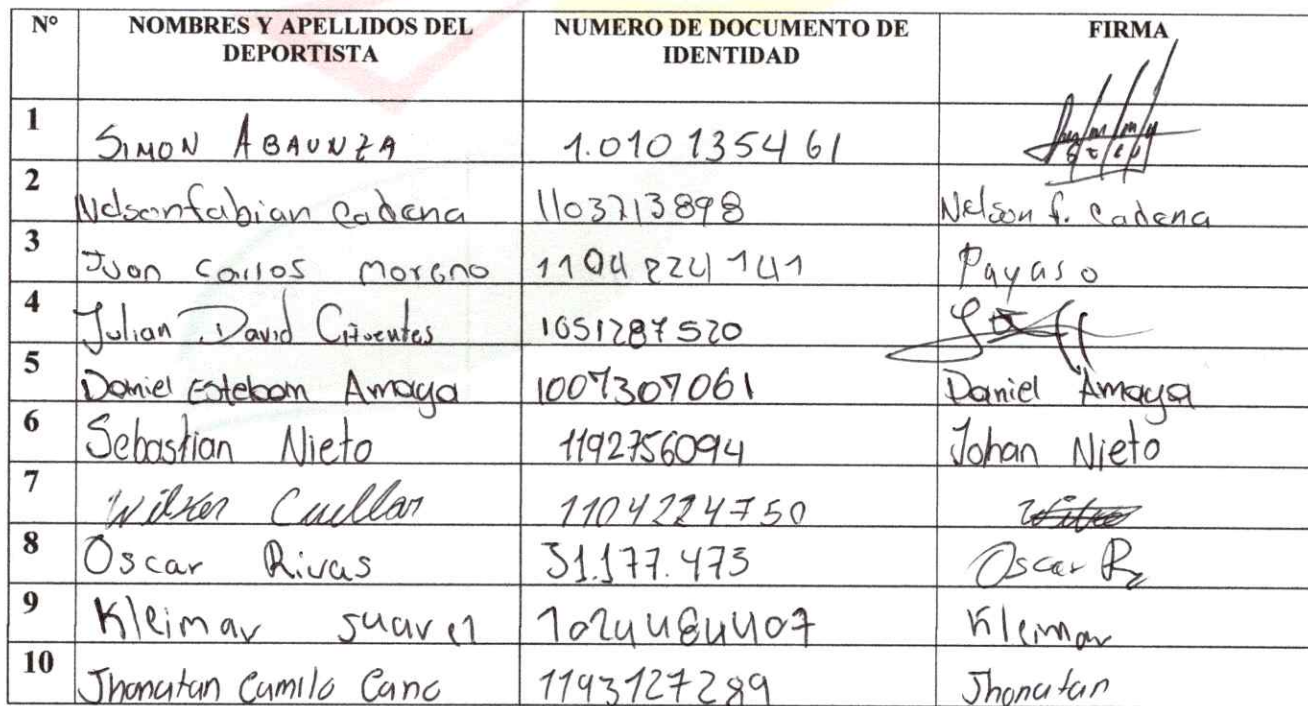 N° NOMBRES Y APELLIDOS DEL DEPORTISTA NUMERO DE DOCUMENTO DE IDENTIDAD FIRMA
1 SIMON ABAUNZA 1.010135461
2 Nelsonfabian Cadena 1103713898 Nelson f. Cadena
3 Juan Carlos moreno 1104224141 Payaso
4 Julian David Cifuentes 1051287520
5 Daniel Esteban Amaya 1007307061 Daniel Amaya
6 Sebastian Nieto 1192756094 Johan Nieto
7 Wilker Cuellar 1104224750
8 Oscar Rivas 31.177.473 Oscar R
9 Kleimar suarez 1024484407 Kleimar
10 Jhonatan Camilo Cano 1193127289 Jhonatan